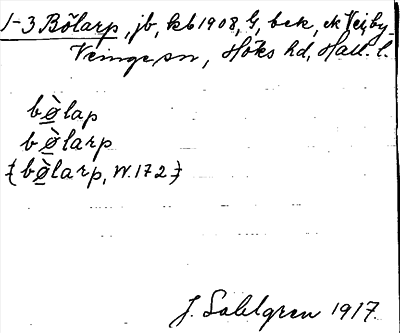 1-3 Bölarp, jb, kb 1908, G, bek, ek Veinge sn, Höks hd, Hall. l.
bø̀lap
bø̀larp
{bø̀larp, W.172}
J. Sahlgren 1917.